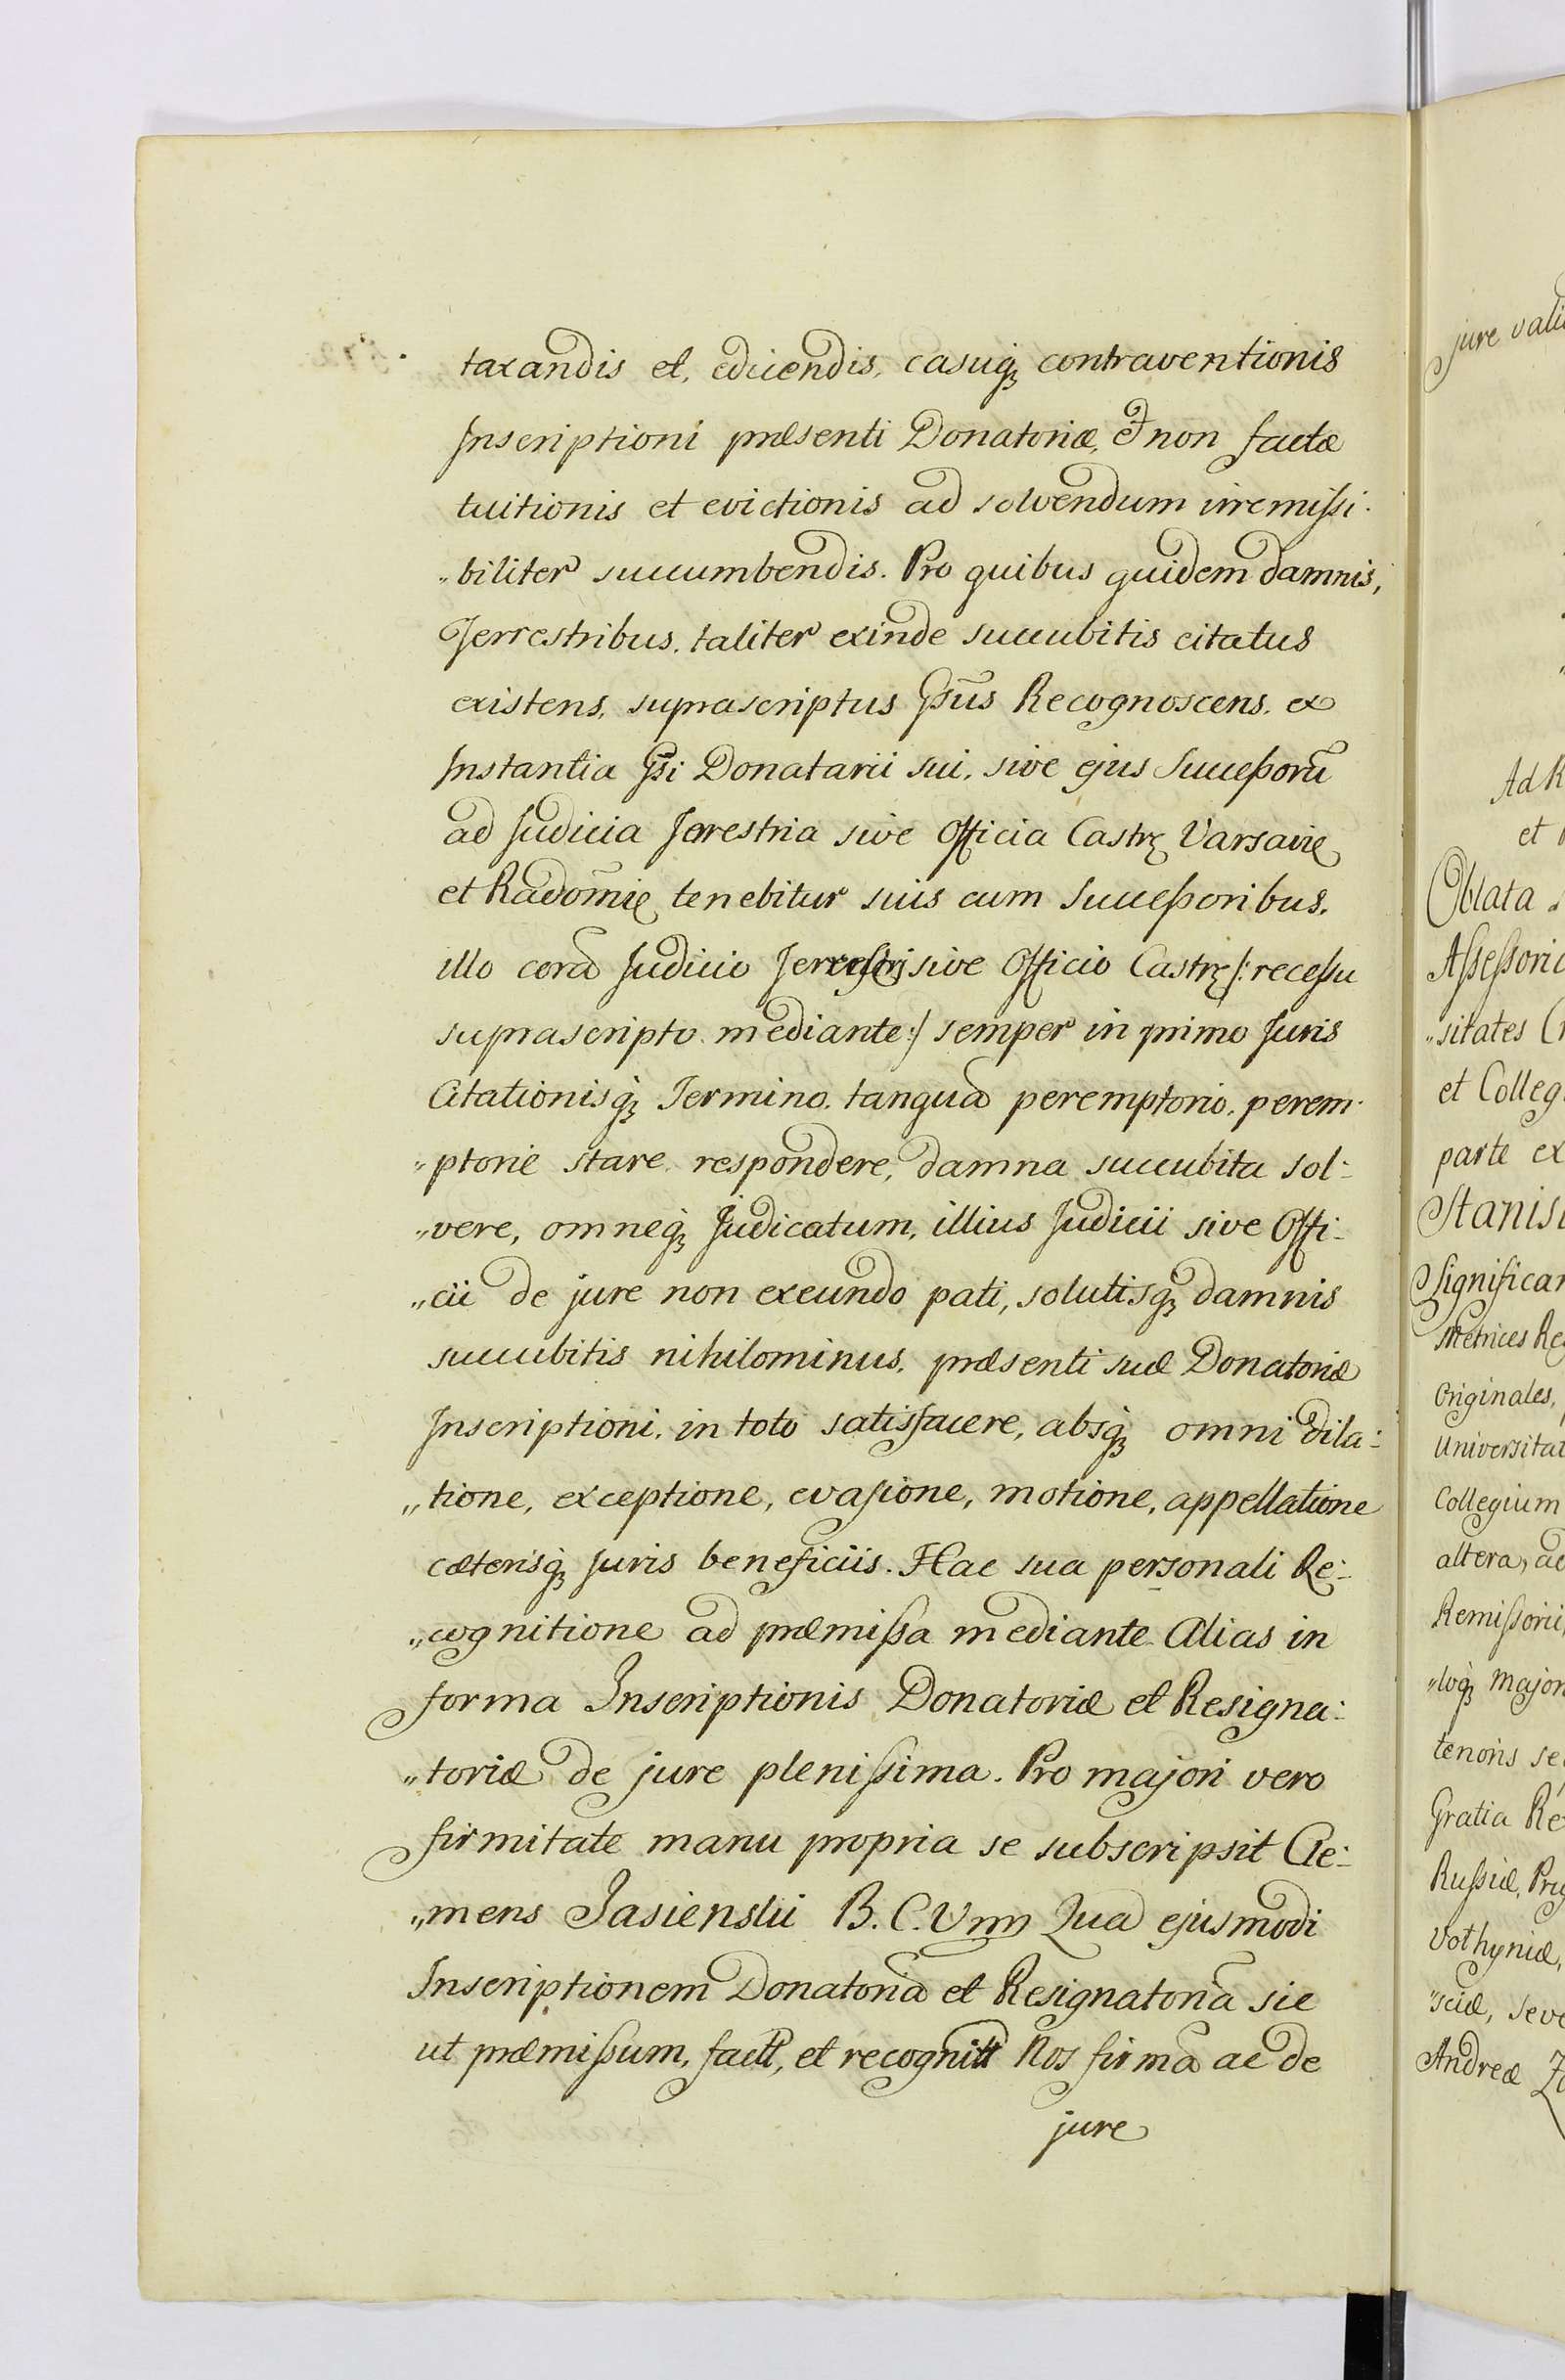 taxandis et, edicendis, casuq₃ contraventionis
Inscriptioni præsenti Donatoriæ, et non factæ
tuitionis et evictionis ad solvendum irremissi-
„biliter succumbendis. Pro quibus quidem damnis,
Terrestribus, taliter exinde succubitis citatus
existens, suprascriptus Gs̃us Recognoscens, ex
Instantia Gs̃i Donatarii sui, sive ejus Successorũ
ad Judicia Terrestria sive Officia Castrę Varsavię
et Radomię tenebitur suis cum Successoribus,
illo corã Judicio Terrestri sive Officio Castrę /: recessu
suprascripto mediante :/ semper in primo Juris
Citationisq₃ Termino, tanquã peremptorio, perem-
„ptorie stare, respondere, damna succubita sol-
„vere, omneq₃ Judicatum, illius Judicii sive Offi-
„cii de jure non exeundo pati, solutisq₃ damnis
succubitis nihilominus, præsenti suæ Donatoriæ
Inscriptioni, in toto satisfacere, absq₃ omni dila-
„tione, exceptione, evasione, motione, appellatione
cæterisq₃ Juris beneficiis. Hac sua personali Re-
„cognitione ad præmissa mediante Alias in
forma Inscriptionis Donatoriæ et Resigna-
„toriæ de jure plenissima. Pro majori vero
firmitate manu propria se subscripsit Cle-
„mens Jasienski B. C. V mp Quã ejusmodi
Inscriptionem Donatoriã et Resignatoriã sic
ut præmissum, factã, et recognitã Nos firmã ac de
jure
jure vali
Ad R
et
Oblata
Assessoric
„sitates
et Colleg
parte ex
Stanisl
Significan
Metrices Re
Originales,
Universitat
Collegium
altera, ac
Remissorii
„loq₃ Major
tenoris se
Gratia Re
Russiæ, Pru
Volhyniæ,
„sciæ, Seve
Andreæ Za